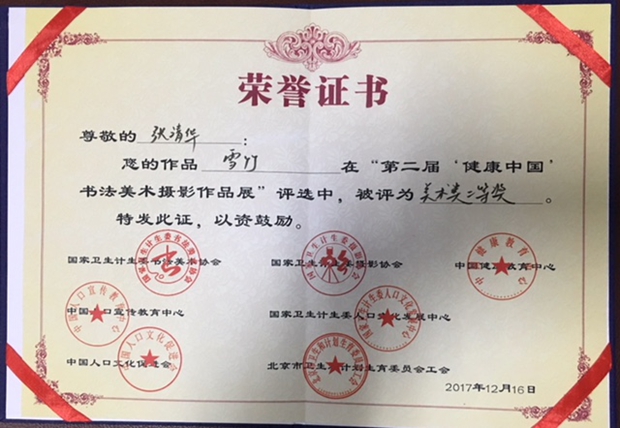 荣誉证书
尊敬的 张清华 :
您的作品 雪竹 在“第二届‘健康中国’
书法美术摄影作品展”评选中，被评为 美术类二等奖 。
特发此证，以资鼓励。
国家卫生计生委书法美术协会 国家卫生计生委摄影协会 中国健康教育中心
中国人口宣传教育中心 国家卫生计生委人口文化发展中心
中国人口文化促进会 北京市卫生和计划生育委员会工会
2017年12月16日